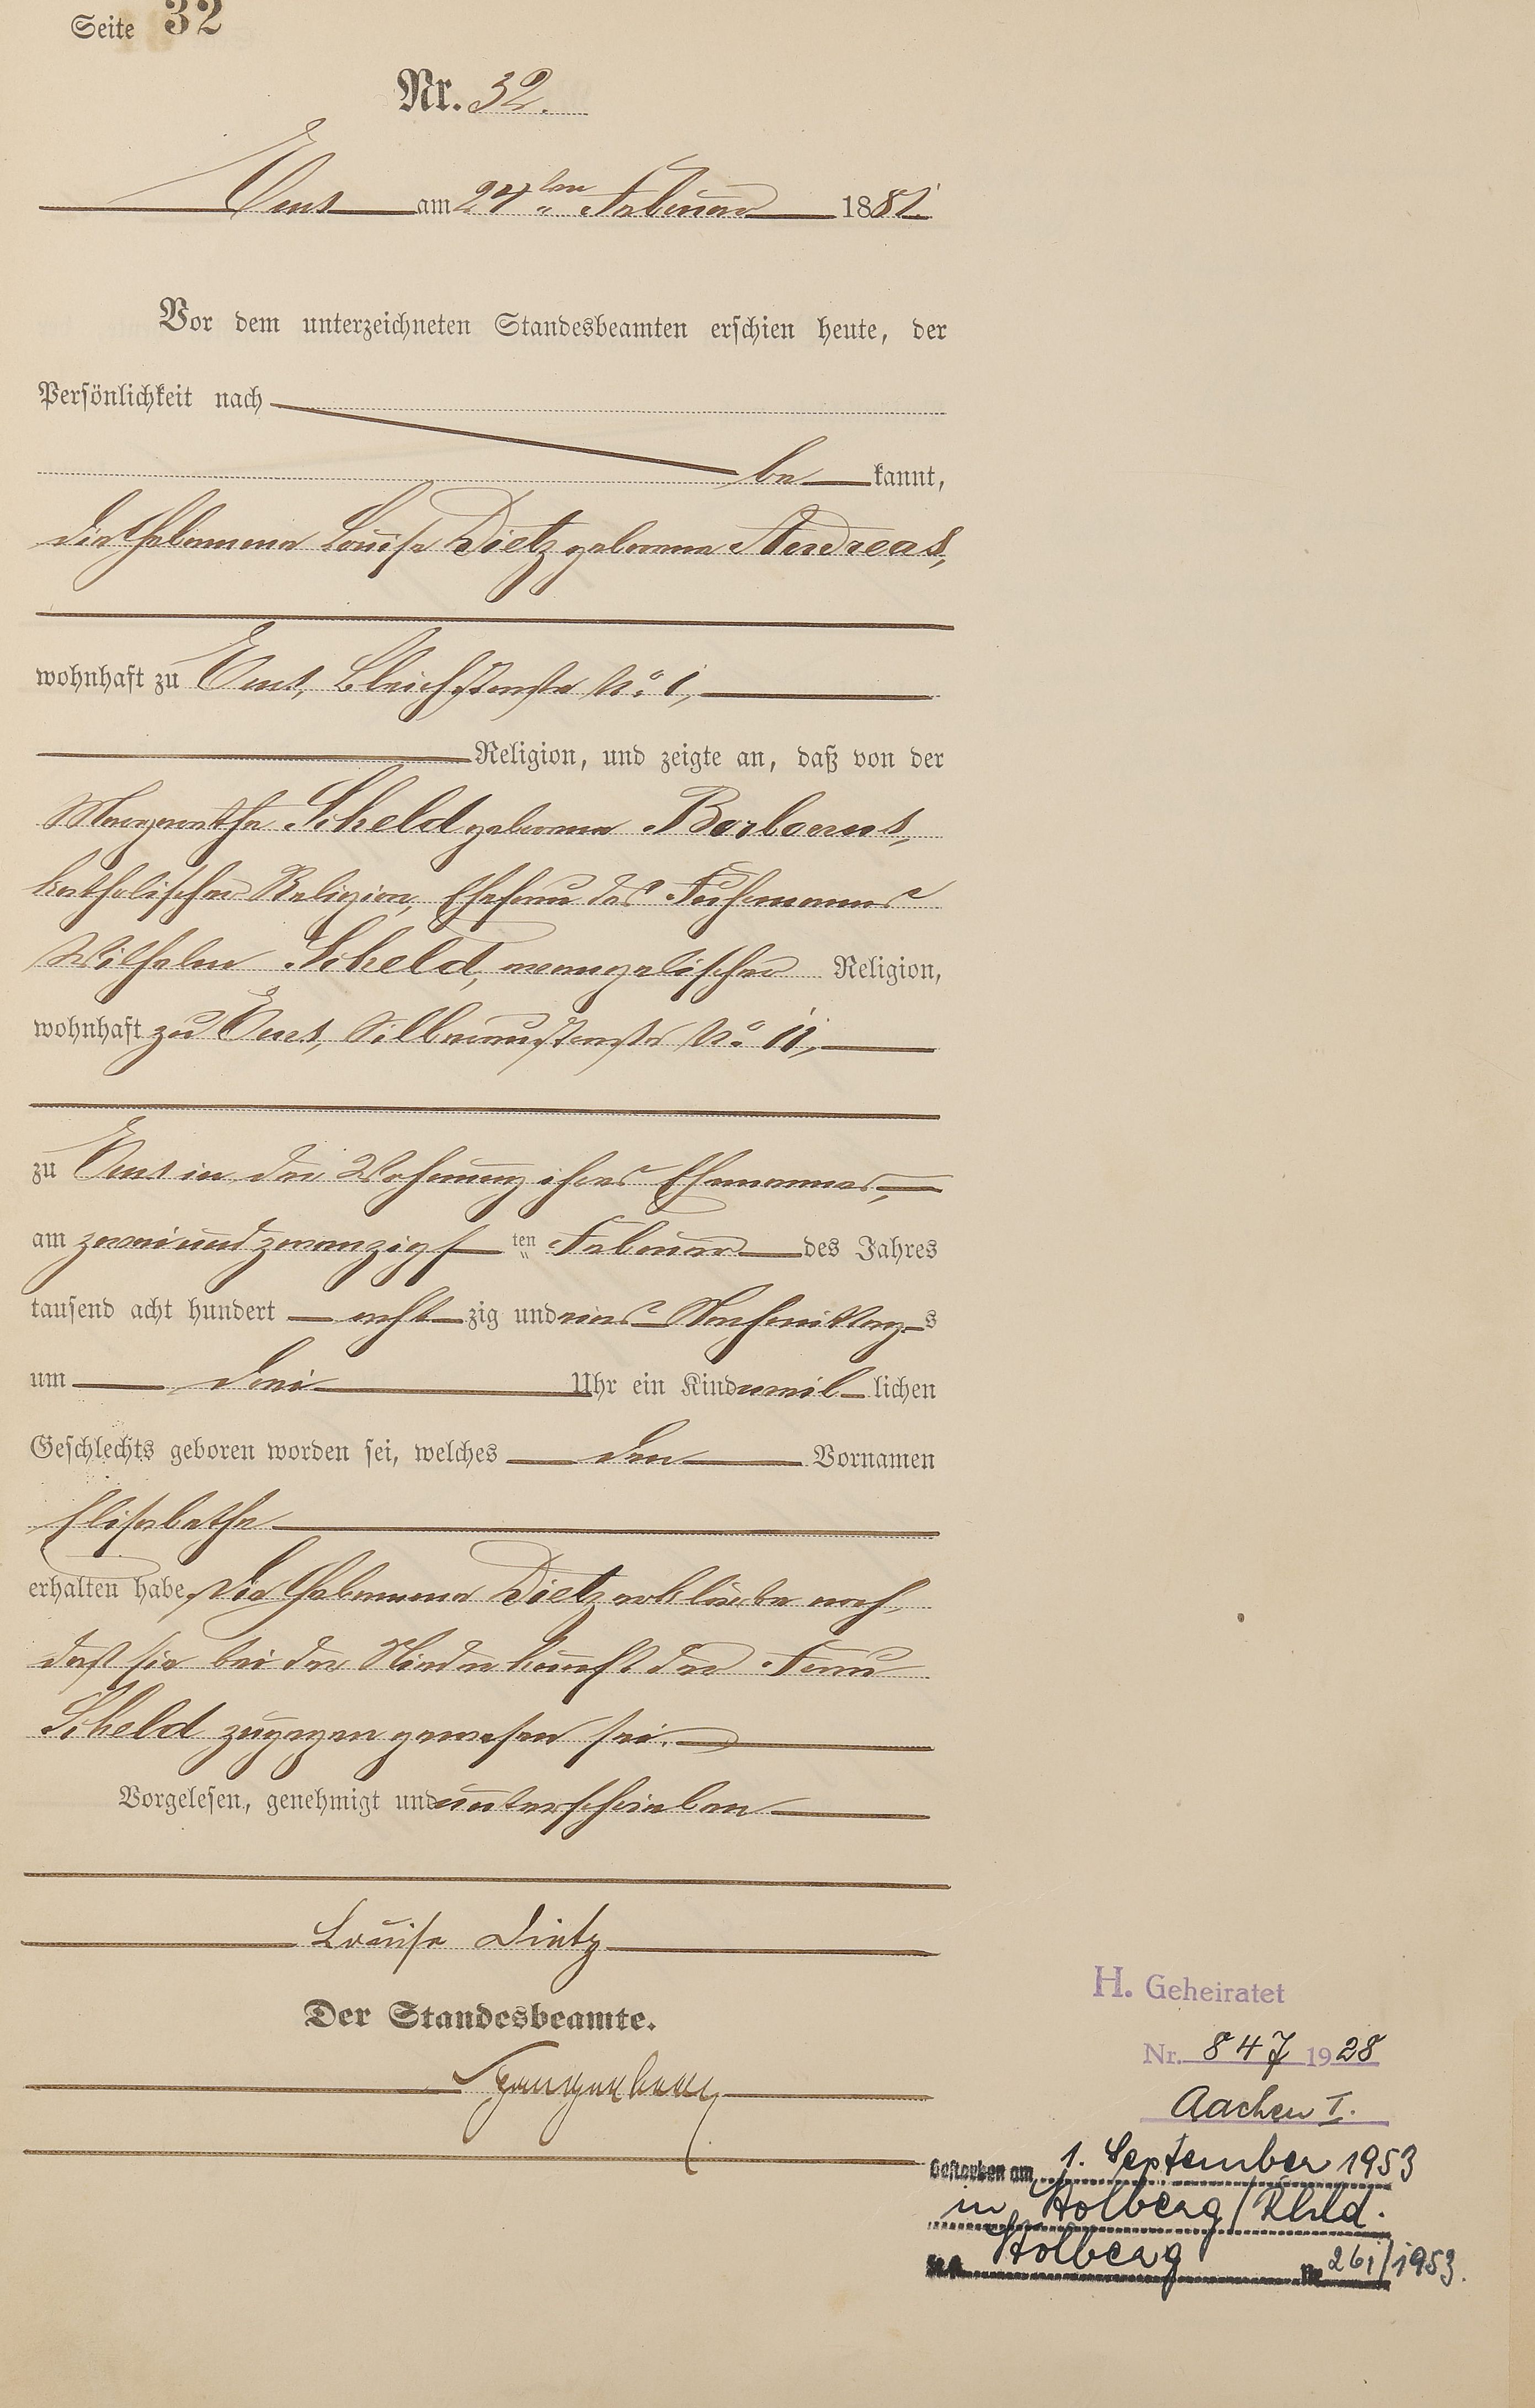 Seite 32
Nr. 32.
Ems am 24ten Februar 1881.
Vor dem unterzeichneten Standesbeamten erschien heute, der
Persönlichkeit nach
be kannt,
die Hebamme Louise Dietz geborene Andreas,
wohnhaft zu Ems, Bleichstraße No. 1,
Religion, und zeigte an, daß von der
Margarethe Scheld geborene
katholischer Religion, Ehefrau des Fuhrmanns
Wilhelm Scheld, evangelischer Religion,
wohnhaft zu Ems, Silberaustraße No. 11,
zu Ems in der Wohnung ihres Ehemannes,
am zweiundzwanzigs ten Februar des Jahres
tausend acht hundert acht zig und eins Nachmittag s
um drei Uhr ein Kind weib lichen
Geschlechts geboren worden sei, welches den Vornamen
Elisabethe
erhalten habe. Die Hebamme Dietz erklärte noch,
daß sie bei der Niederkunft der Frau
Scheld zugegen gewesen sei.
Vorgelesen, genehmigt und unterschrieben
Louise Dietz
Der Standesbeamte.
Spangenberg
H. Geheiratet
Nr. 847 1928
Aachen I.
Gestorben am 1. September 1953
in Stolberg/Rhld.
StA Stolberg Nr. 261/1953.